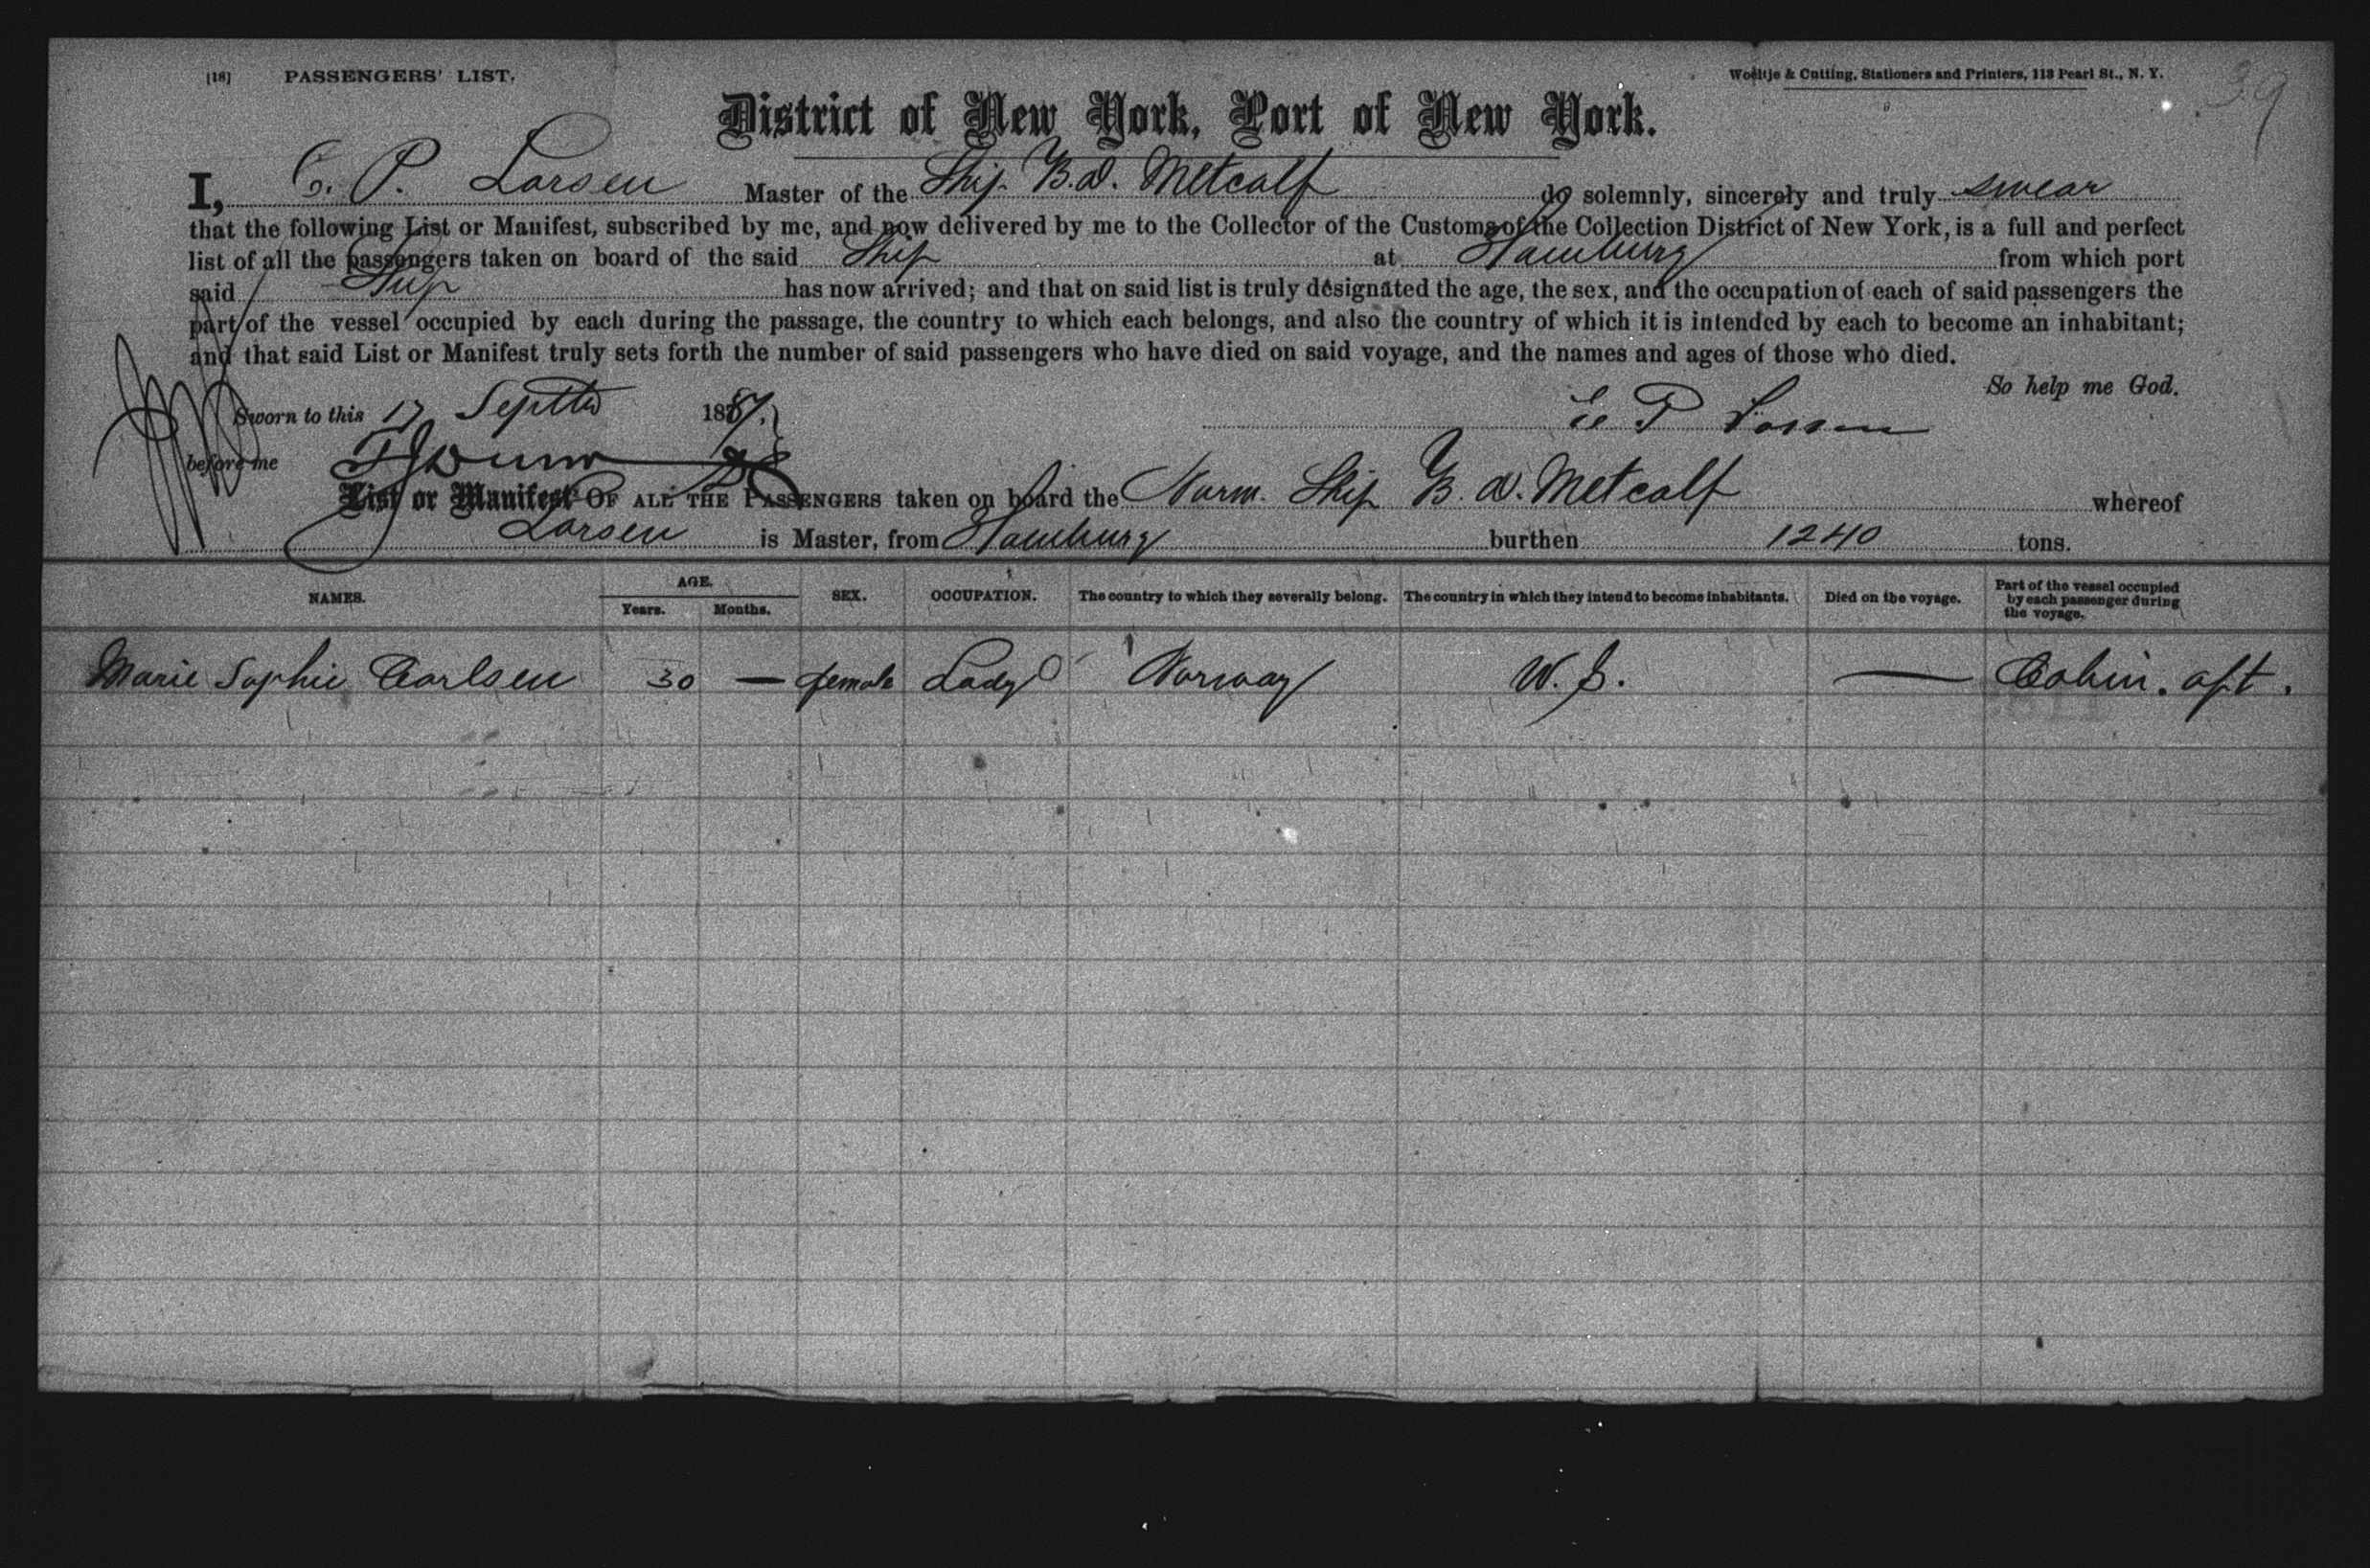 [18] PASSENGERS' LIST.
Woeltje & Cutting, Stationers and Printers, 113 Pearl St., N. Y.
39
District of New York, Port of New York.
I, C. P. Larsen Master of the Ship B. D. Metcalf do solemnly, sincerely and truly swear
that the following List or Manifest, subscribed by me, and now delivered by me to the Collector of the Customs of the Collection District of New York, is a full and perfect
list of all the passengers taken on board of the said Ship at Hamburg from which port
said Ship has now arrived; and that on said list is truly designated the age, the sex, and the occupation of each of said passengers the
part of the vessel occupied by each during the passage, the country to which each belongs, and also the country of which it is intended by each to become an inhabitant;
and that said List or Manifest truly sets forth the number of said passengers who have died on said voyage, and the names and ages of those who died.
So help me God.
Sworn to this 17 Septbr 1887. C P Larsen
before me
List or Manifest OF ALL THE PASSENGERS taken on board the Norw. Ship B. D. Metcalf whereof
Larsen is Master, from Hamburg burthen 1240 tons.
NAMES. AGE. Years. Months. SEX. OCCUPATION. The country to which they severally belong. The country in which they intend to become inhabitants. Died on the voyage. Part of the vessel occupied by each passenger during the voyage.
Marie Sophie Carlsen 30 — female Lady Norway U. S. — Cabin. aft.